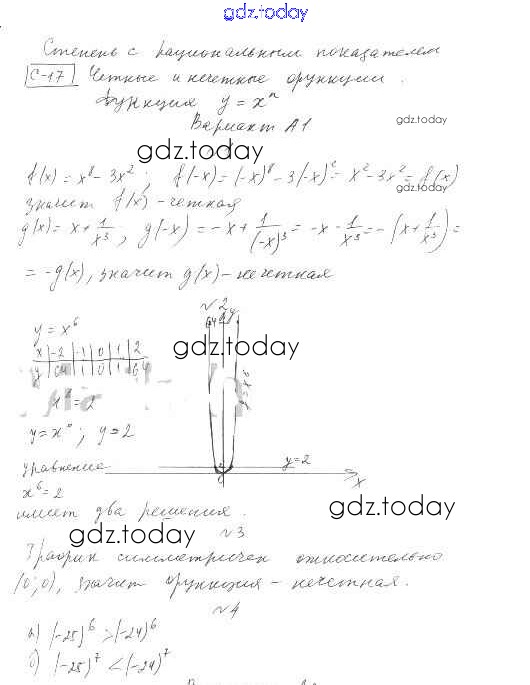 gdz.today
Степень с рациональным показателем
С-17 Четные и нечетные функции.
Функция y = xⁿ
Вариант А1
gdz.today
gdz.today
f(x) = x⁸ - 3x²; f(-x) = (-x)⁸ - 3(-x)² = x² - 3x² = f(x)
gdz.today
значит f(x) - четная
g(x) = x + 1/x³; g(-x) = -x + 1/(-x)³ = -x - 1/x³ = -(x + 1/x³) =
= -g(x), значит g(x) - нечетная
№2
y = x⁶
gdz.today
x -2 -1 0 1 2
y 64 1 0 1 64
y = x⁶
y = 2
y=2
уравнение
x
x⁶ = 2
имеет два решения.
gdz.today
gdz.today
№3
График симметричен относительно
(0;0), значит функция - нечетная.
№4
а) (-25)⁶ > (-24)⁶
б) (-25)⁷ < (-24)⁷